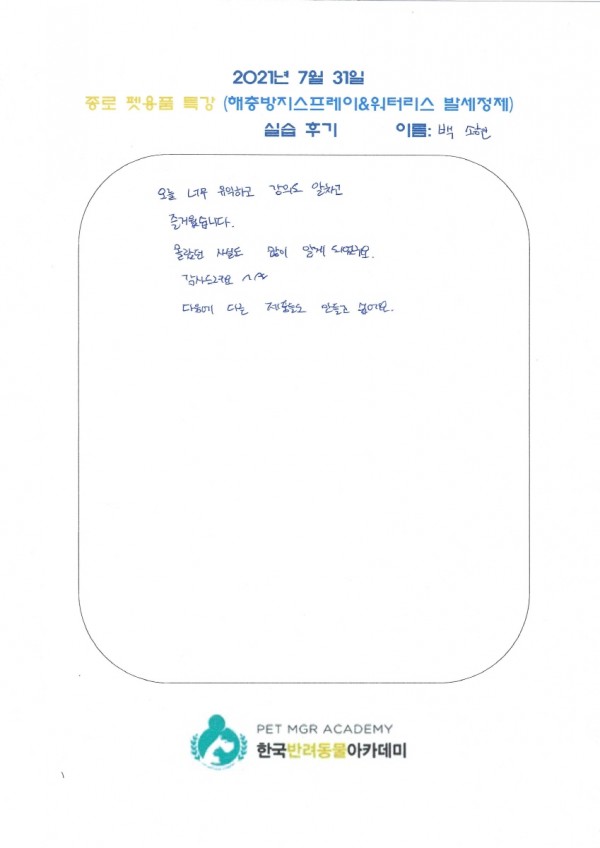 2021년 7월 31일
종로 펫용품 특강 (해충방지스프레이&워터리스 발세정제)
실습 후기 이름: 백 소현
오늘 너무 유익하고 강의도 알차고
즐거웠습니다.
몰랐던 사실도 많이 알게 되었구요.
감사드려요 ^^
다음에 다른 제품들도 만들고 싶어요.
PET MGR ACADEMY
한국반려동물아카데미